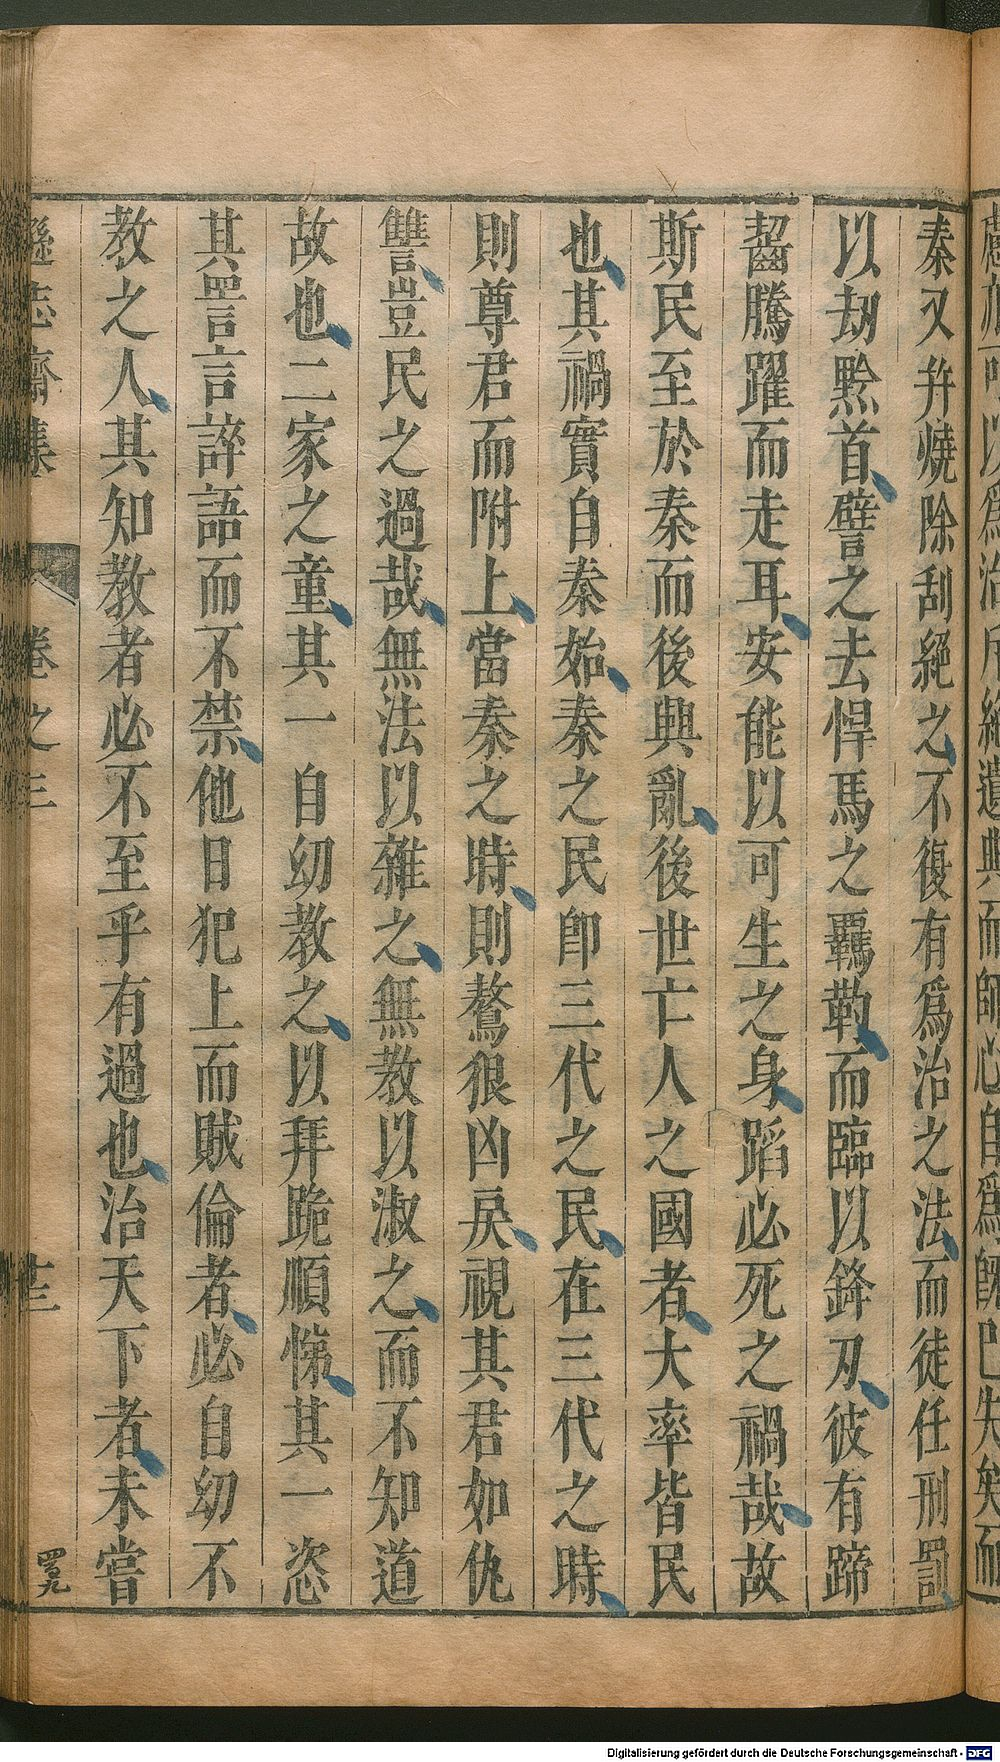 秦又幷燒除刮絕之不復有爲治之法而徒任刑罰
以劫黔首譬之去悍馬之羈勒而臨以鋒刃彼有蹄
齧騰躍而走耳安能以可生之身蹈必死之禍哉故
斯民至於秦而後興亂後世亡人之國者大率皆民
也其禍實自秦始秦之民卽三代之民在三代之時
則尊君而附上當秦之時則驁狠凶戾視其君如仇
讐豈民之過哉無法以維之無教以淑之而不知道
故也二家之童其一自幼教之以拜跪順悌其一恣
其詈言誶語而不禁他日犯上而賊倫者必自幼不
教之人其知教者必不至乎有過也治天下者未嘗
遜志齋集 卷之三 廿三
Digitalisierung gefördert durch die Deutsche Forschungsgemeinschaft - DFG